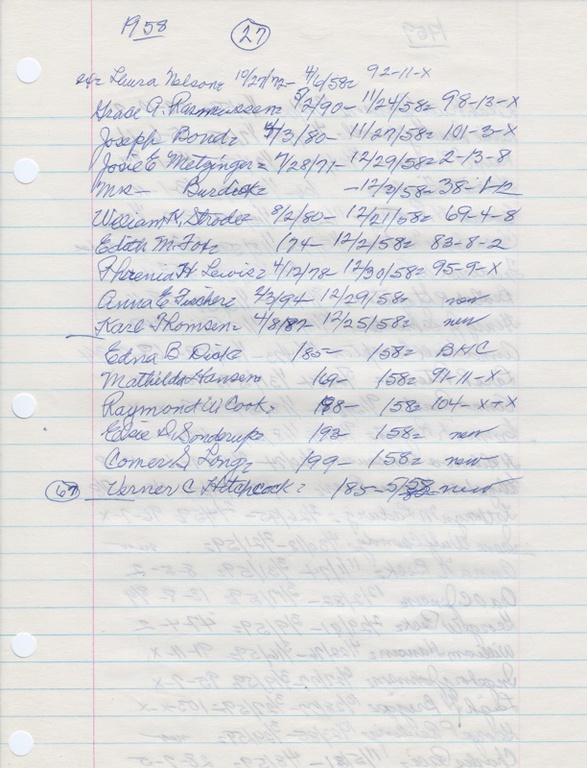 1958 27
Laura Nelson= 10/27/72- 4/6/58= 92-11-X
Grace A. Rasmussen= 5/2/90- 11/24/58= 98-13-X
Joseph Bond= 4/3/80- 11/27/58= 101-3-X
Josie E Metzinger= 7/28/71- 12/29/58= 2-13-8
Mrs- Burdick= -12/3/58= 38-
William R. Strode= 8/2/80- 12/21/58= 69-4-8
Edith M. Fox= 174- 12/2/58= 83-8-2
Phrenia H Lewis= 4/12/78- 12/30/58= 95-9-X
Anna E Fischer= 2/3/94- 12/29/58= new
Karl Thomsen= 4/8/87- 12/25/58= new
Edna B Dick 185- 158= BHC
Mathilda Hansen 169- 158= 91-11-X
Raymond W Cook= 198- 158= 104-X+X
Elsie D. Sonderup= 193- 158= new
Comer S Long= 199- 158= new
67 Verner C. Hitchcock= 185- new